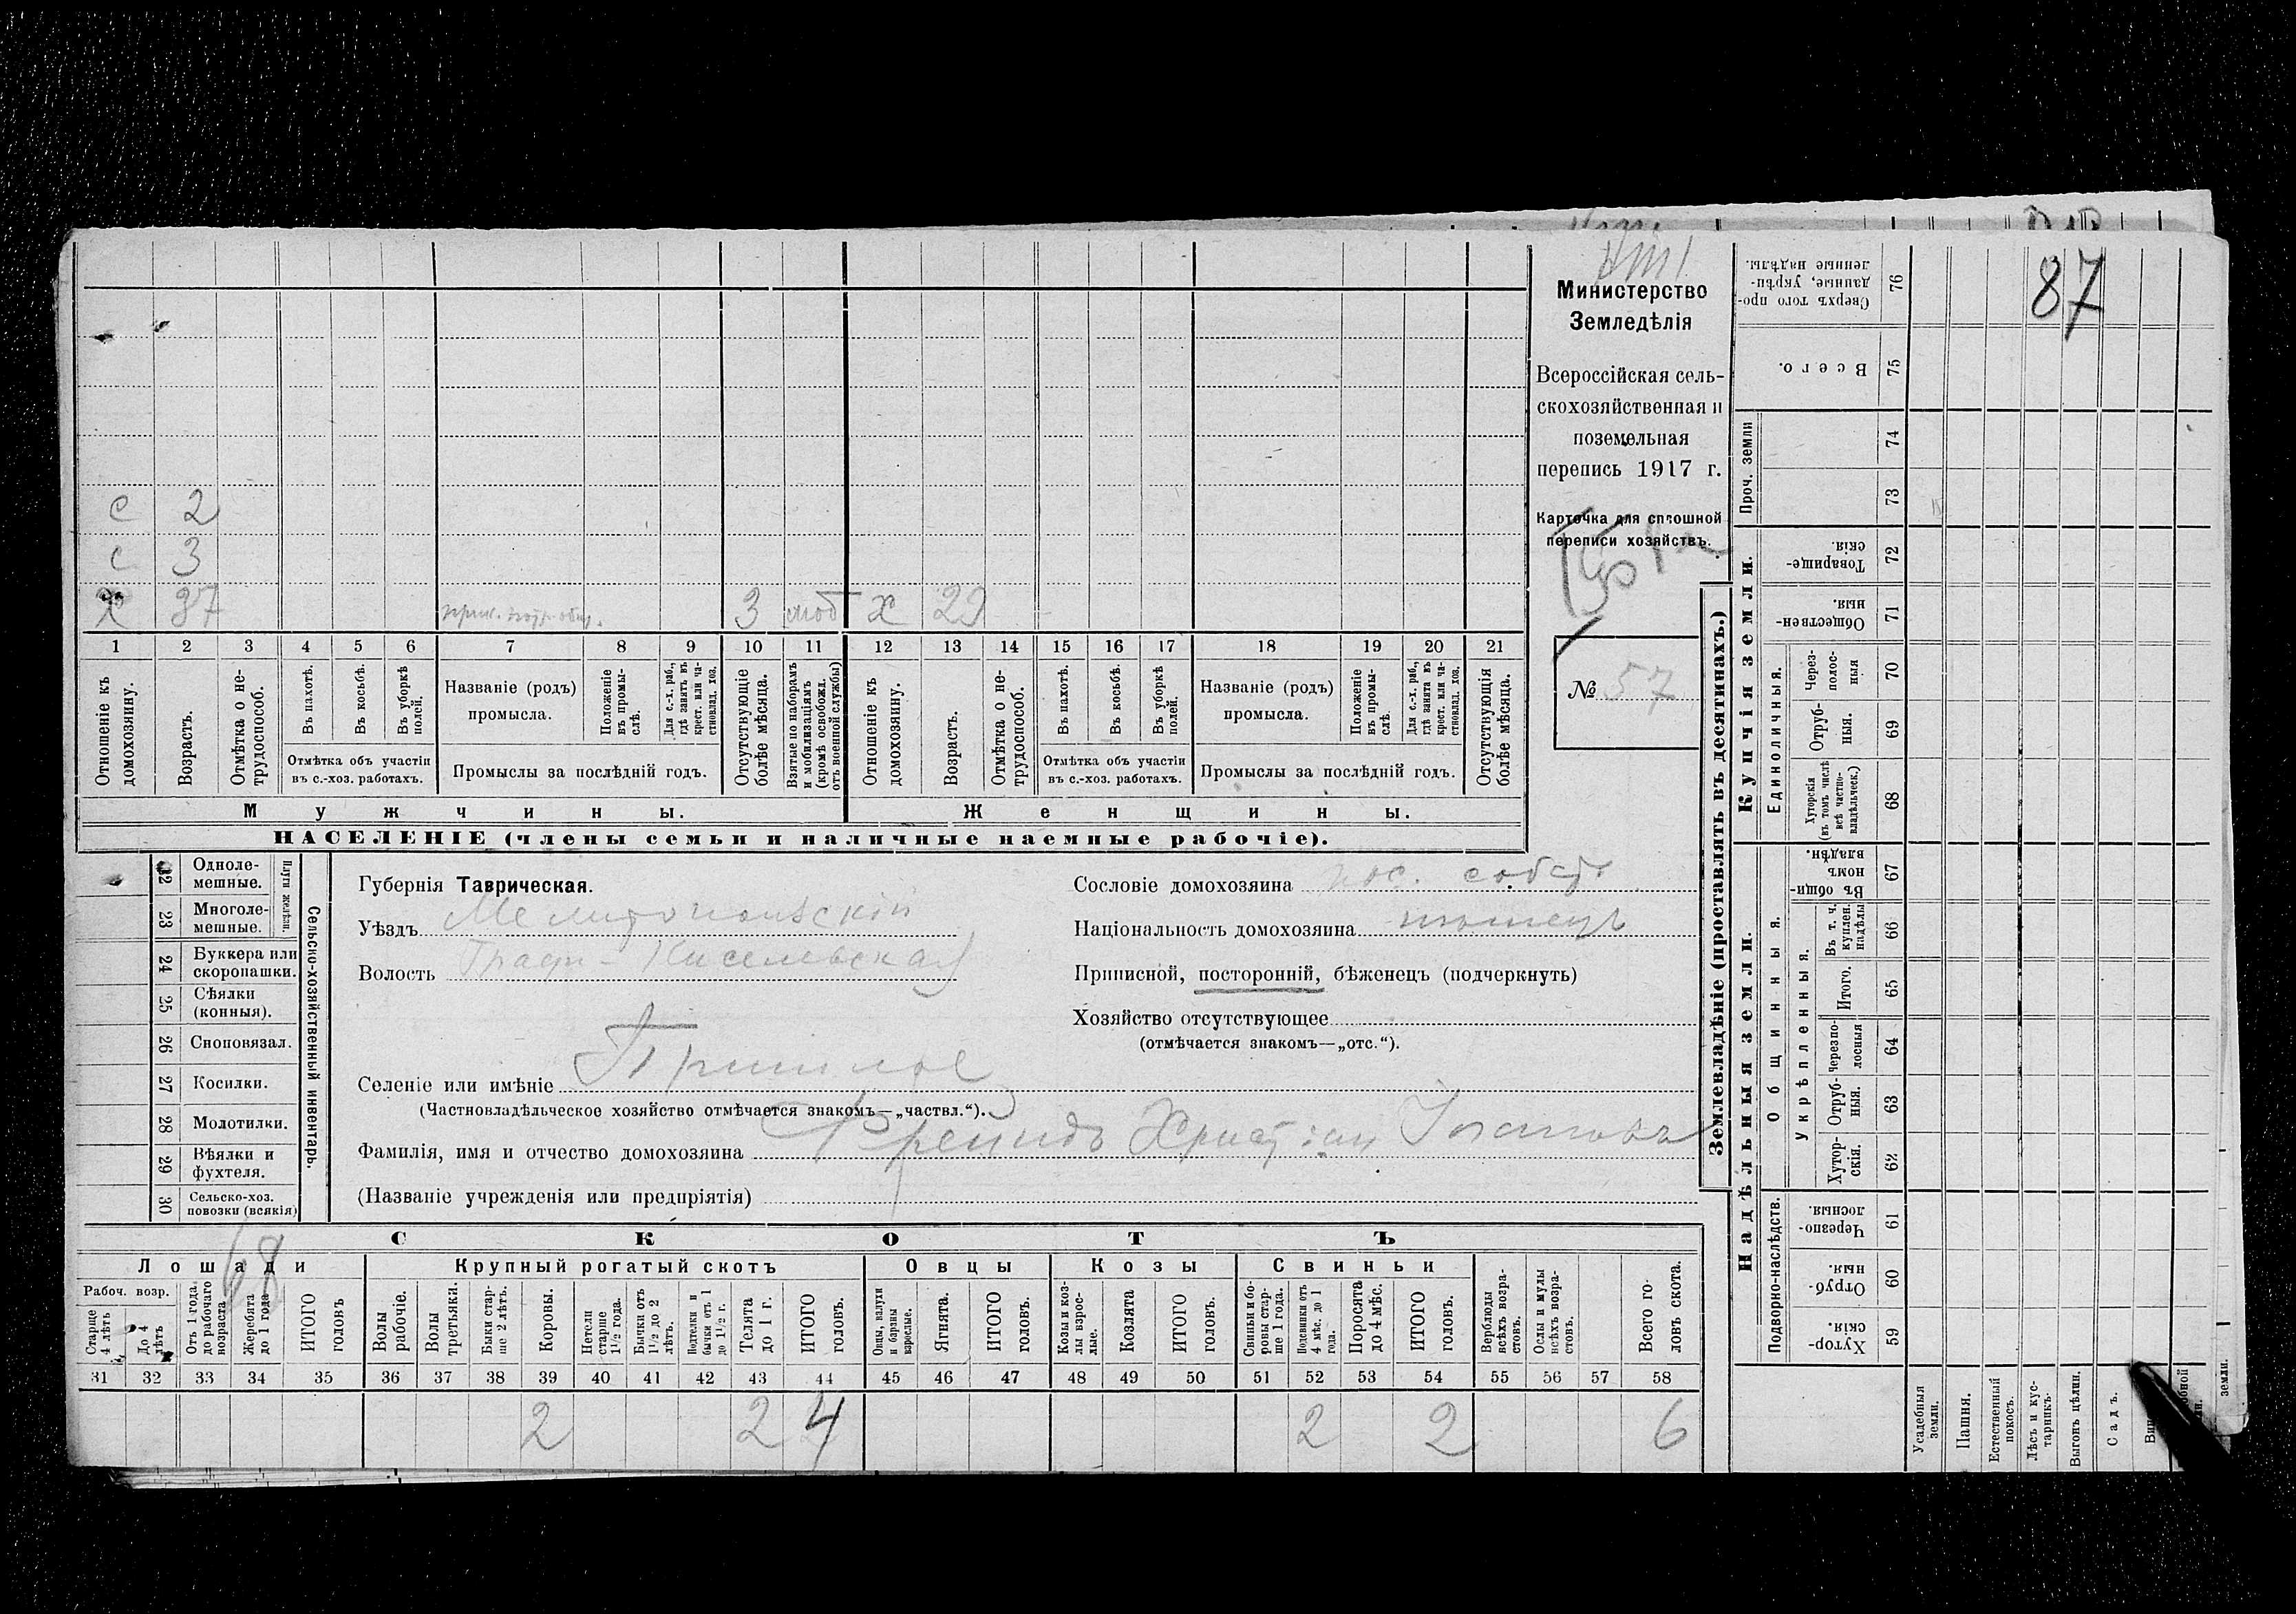 87
Министерство
Земледѣлія
Всероссійская сель-
скохозяйственная и
поземельная
перепись 1917 г.
Карточка для сплошной
переписи хозяйствъ.
№ 57
с 2
с 3
х 37 3 моб х 29
1 2 3 4 5 6 7 8 9 10 11 12 13 14 15 16 17 18 19 20 21
Отношеніе къ домохозяину.
Возрастъ.
Отмѣтка о не-трудоспособ.
Въ пахотѣ.
Въ косьбѣ.
Въ уборкѣ полей.
Названіе (родъ) промысла.
Положеніе въ промы-слѣ.
Для с.-х. раб., гдѣ занятъ въ крест. или ча-стновлад. хоз.
Отсутствующіе болѣе мѣсяца.
Взятые по наборамъ и мобилизаціямъ (кромѣ освобожд. отъ военной службы)
Отношеніе къ домохозяину.
Возрастъ.
Отмѣтка о не-трудоспособ.
Въ пахотѣ.
Въ косьбѣ.
Въ уборкѣ полей.
Названіе (родъ) промысла.
Положеніе въ промы-слѣ.
Для с.-х. раб., гдѣ занята въ крест. или ча-стновлад. хоз.
Отсутствующія болѣе мѣсяца.
Отмѣтка объ участіи въ с.-хоз. работахъ.
Промыслы за послѣдній годъ.
Отмѣтка объ участіи въ с.-хоз. работахъ.
Промыслы за послѣдній годъ.
Мужчины.
Женщины.
НАСЕЛЕНІЕ (члены семьи и наличные наемные рабочіе).
Сельско-хозяйственный инвентарь.
Плуги желѣзн.
22 Одноле-мешные.
23 Многоле-мешные.
24 Буккера или скоропашки.
25 Сѣялки (конныя).
26 Сноповязал.
27 Косилки.
28 Молотилки.
29 Вѣялки и фухтеля.
30 Сельско-хоз. повозки (всякія)
Губернія Таврическая.
Уѣздъ Мелитопольскій
Волость Графо-Киселевская
Селеніе или имѣніе
(Частновладѣльческое хозяйство отмѣчается знакомъ—„частвл.“).
Фамилія, имя и отчество домохозяина Фрейндъ Христіан Іогановъ
(Названіе учрежденія или предпріятія)
Сословіе домохозяина пос. собст
Національность домохозяина нѣмецъ
Приписной, посторонній, бѣженецъ (подчеркнуть)
Хозяйство отсутствующее
(отмѣчается знакомъ—„отс.“).
68
СКОТЪ
Лошади
Крупный рогатый скотъ
Овцы
Козы
Свиньи
Рабоч. возр.
Старше 4 лѣтъ
До 4 лѣтъ
Отъ 1 года до рабочаго возраста
Жеребята до 1 года
ИТОГО головъ
Волы рабочіе.
Волы третьяки.
Быки стар-ше 2 лѣтъ.
Коровы.
Нетели старше 1½ года.
Бычки отъ 1½ до 2 лѣтъ.
Подтелки и бычки отъ 1 до 1½ г.
Телята до 1 г.
ИТОГО головъ.
Овцы, валухи и бараны взрослые.
Ягнята.
ИТОГО головъ.
Козы и коз-лы взрос-лые.
Козлята
ИТОГО головъ.
Свиньи и бо-ровы стар-ше 1 года.
Подсвинки отъ 4 мѣс. до 1 года.
Поросята до 4 мѣс.
ИТОГО головъ.
Верблюды всѣхъ возра-стовъ.
Ослы и мулы всѣхъ возра-стовъ.
Всего го-ловъ скота.
31 32 33 34 35 36 37 38 39 40 41 42 43 44 45 46 47 48 49 50 51 52 53 54 55 56 57 58
2 2 4 2 2 6
Землевладѣніе (проставлять въ десятинахъ.)
Купчія земли.
Надѣльныя земли.
Сверхъ того про-данные, укрѣп-ленные надѣлы. 76
Всего. 75
Проч. земли 74
73
Товарище-скія. 72
Обществен-ныя. 71
Единоличныя.
Через-полос-ныя 70
Отруб-ныя. 69
Хуторскія (въ томъ числѣ всѣ частно-владѣльческ.) 68
Общинныя.
Въ общин-номъ владѣн. 67
Укрѣпленныя.
Въ т. ч. куплен. надѣлы 66
Итого. 65
Черезпо-лосныя 64
Отруб-ныя. 63
Хутор-скія. 62
Подворно-наслѣдств.
Черезпо-лосныя. 61
Отруб-ныя. 60
Хутор-скія. 59
Усадебныя земли.
Пашня.
Естественный покосъ.
Лѣсъ и кус-тарникъ.
Выгонъ цѣлин.
Садъ.
земли.